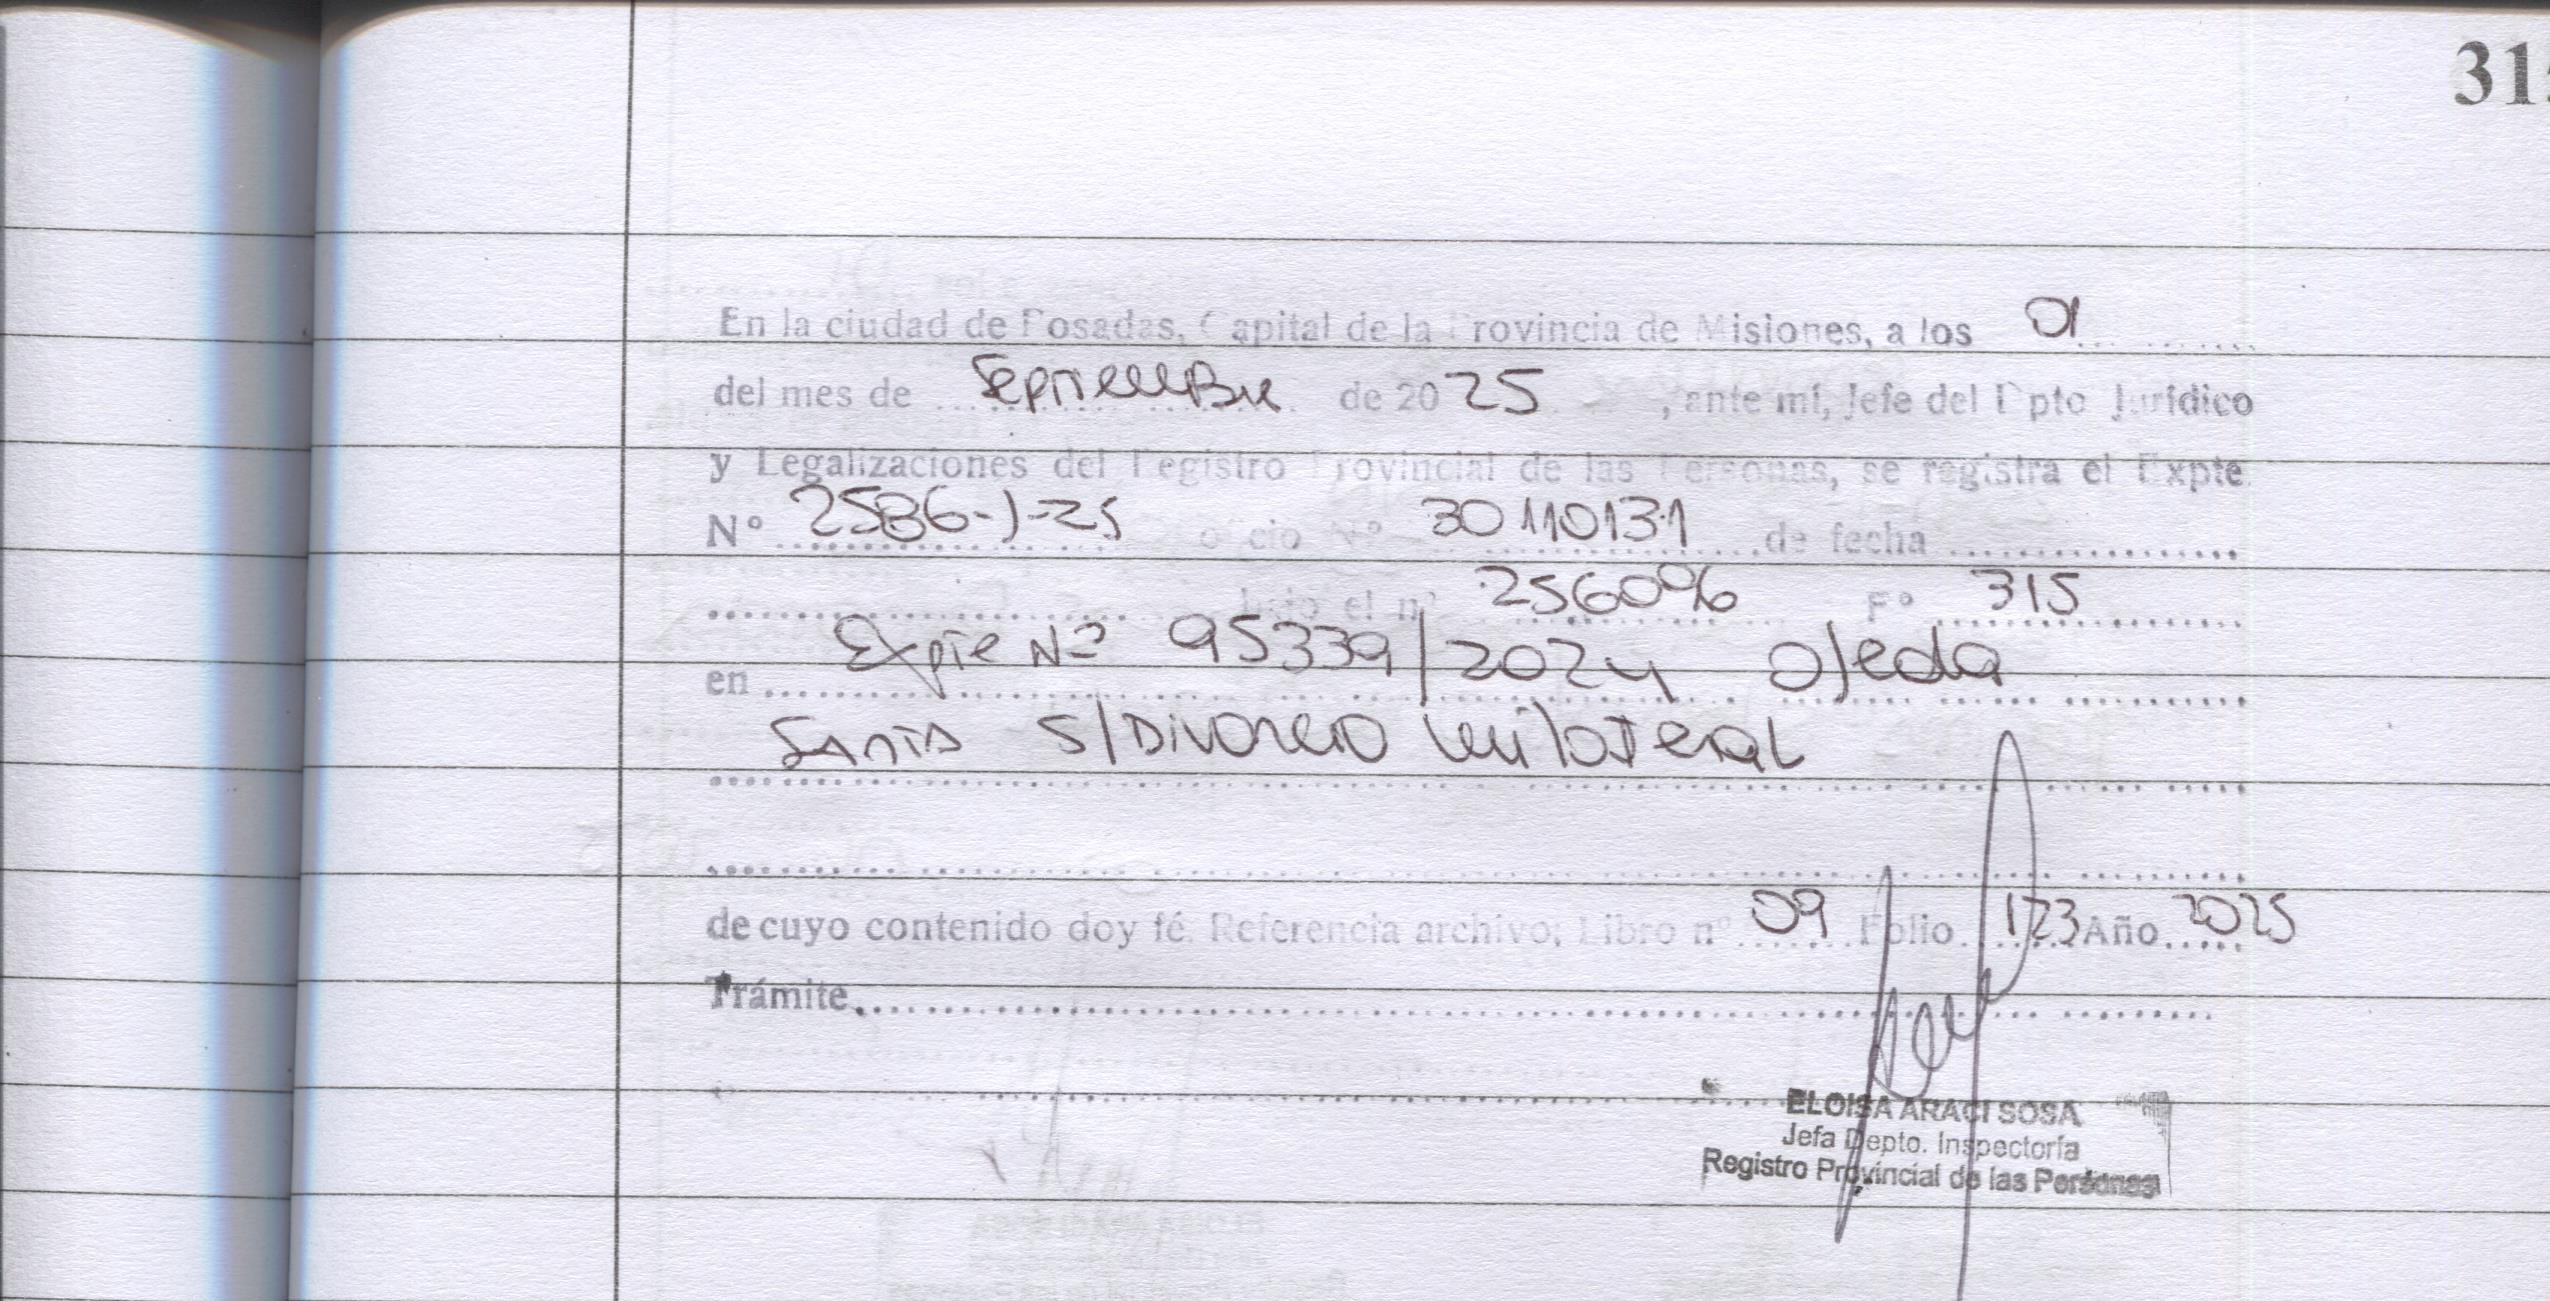 315
En la ciudad de Posadas, Capital de la Provincia de Misiones, a los 01
del mes de Septiembre de 2025, ante mí, Jefe del Dpto Jurídico
y Legalizaciones del Registro Provincial de las Personas, se registra el Expte.
N° 2586-J-25 oficio N° 30110131 de fecha
bajo el n° 256096 F° 315
en Expte Nº 95339/2024 Ojeda
Santa S/Divorcio Unilateral
de cuyo contenido doy fé. Referencia archivo; Libro nº 09 Folio 123 Año 2025
Trámite
ELOISA ARACI SOSA
Jefa Depto. Inspectoría
Registro Provincial de las Personas